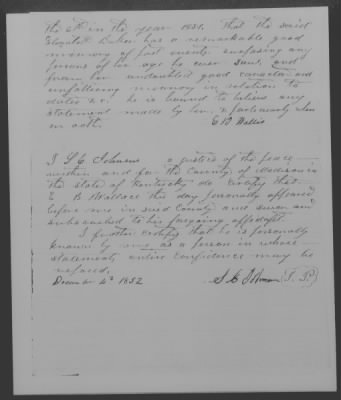 the 6th in the year 1851. That the said
Elizabeth has a remarkable good
memory of past events surpassing any
person of her age he ever saw, and
from her undoubted good caracter and
unfaltering memory in relation to
dates &c. he is bound to believe any
statement made by her, & particularly when
on oath. E B Wallis
I S E Johnson a justice of the peace
within and for the County of Madison in
the state of Kentucky do certify that
E B Wallace this day personally appeared
before me in said County and swore and
subscribed to his foregoing affidavit
I further certify that he is personally
known by me as a person in whose
statements entire confidence may be
reposed.
December 4th 1852 S E Johnson (J. P.)